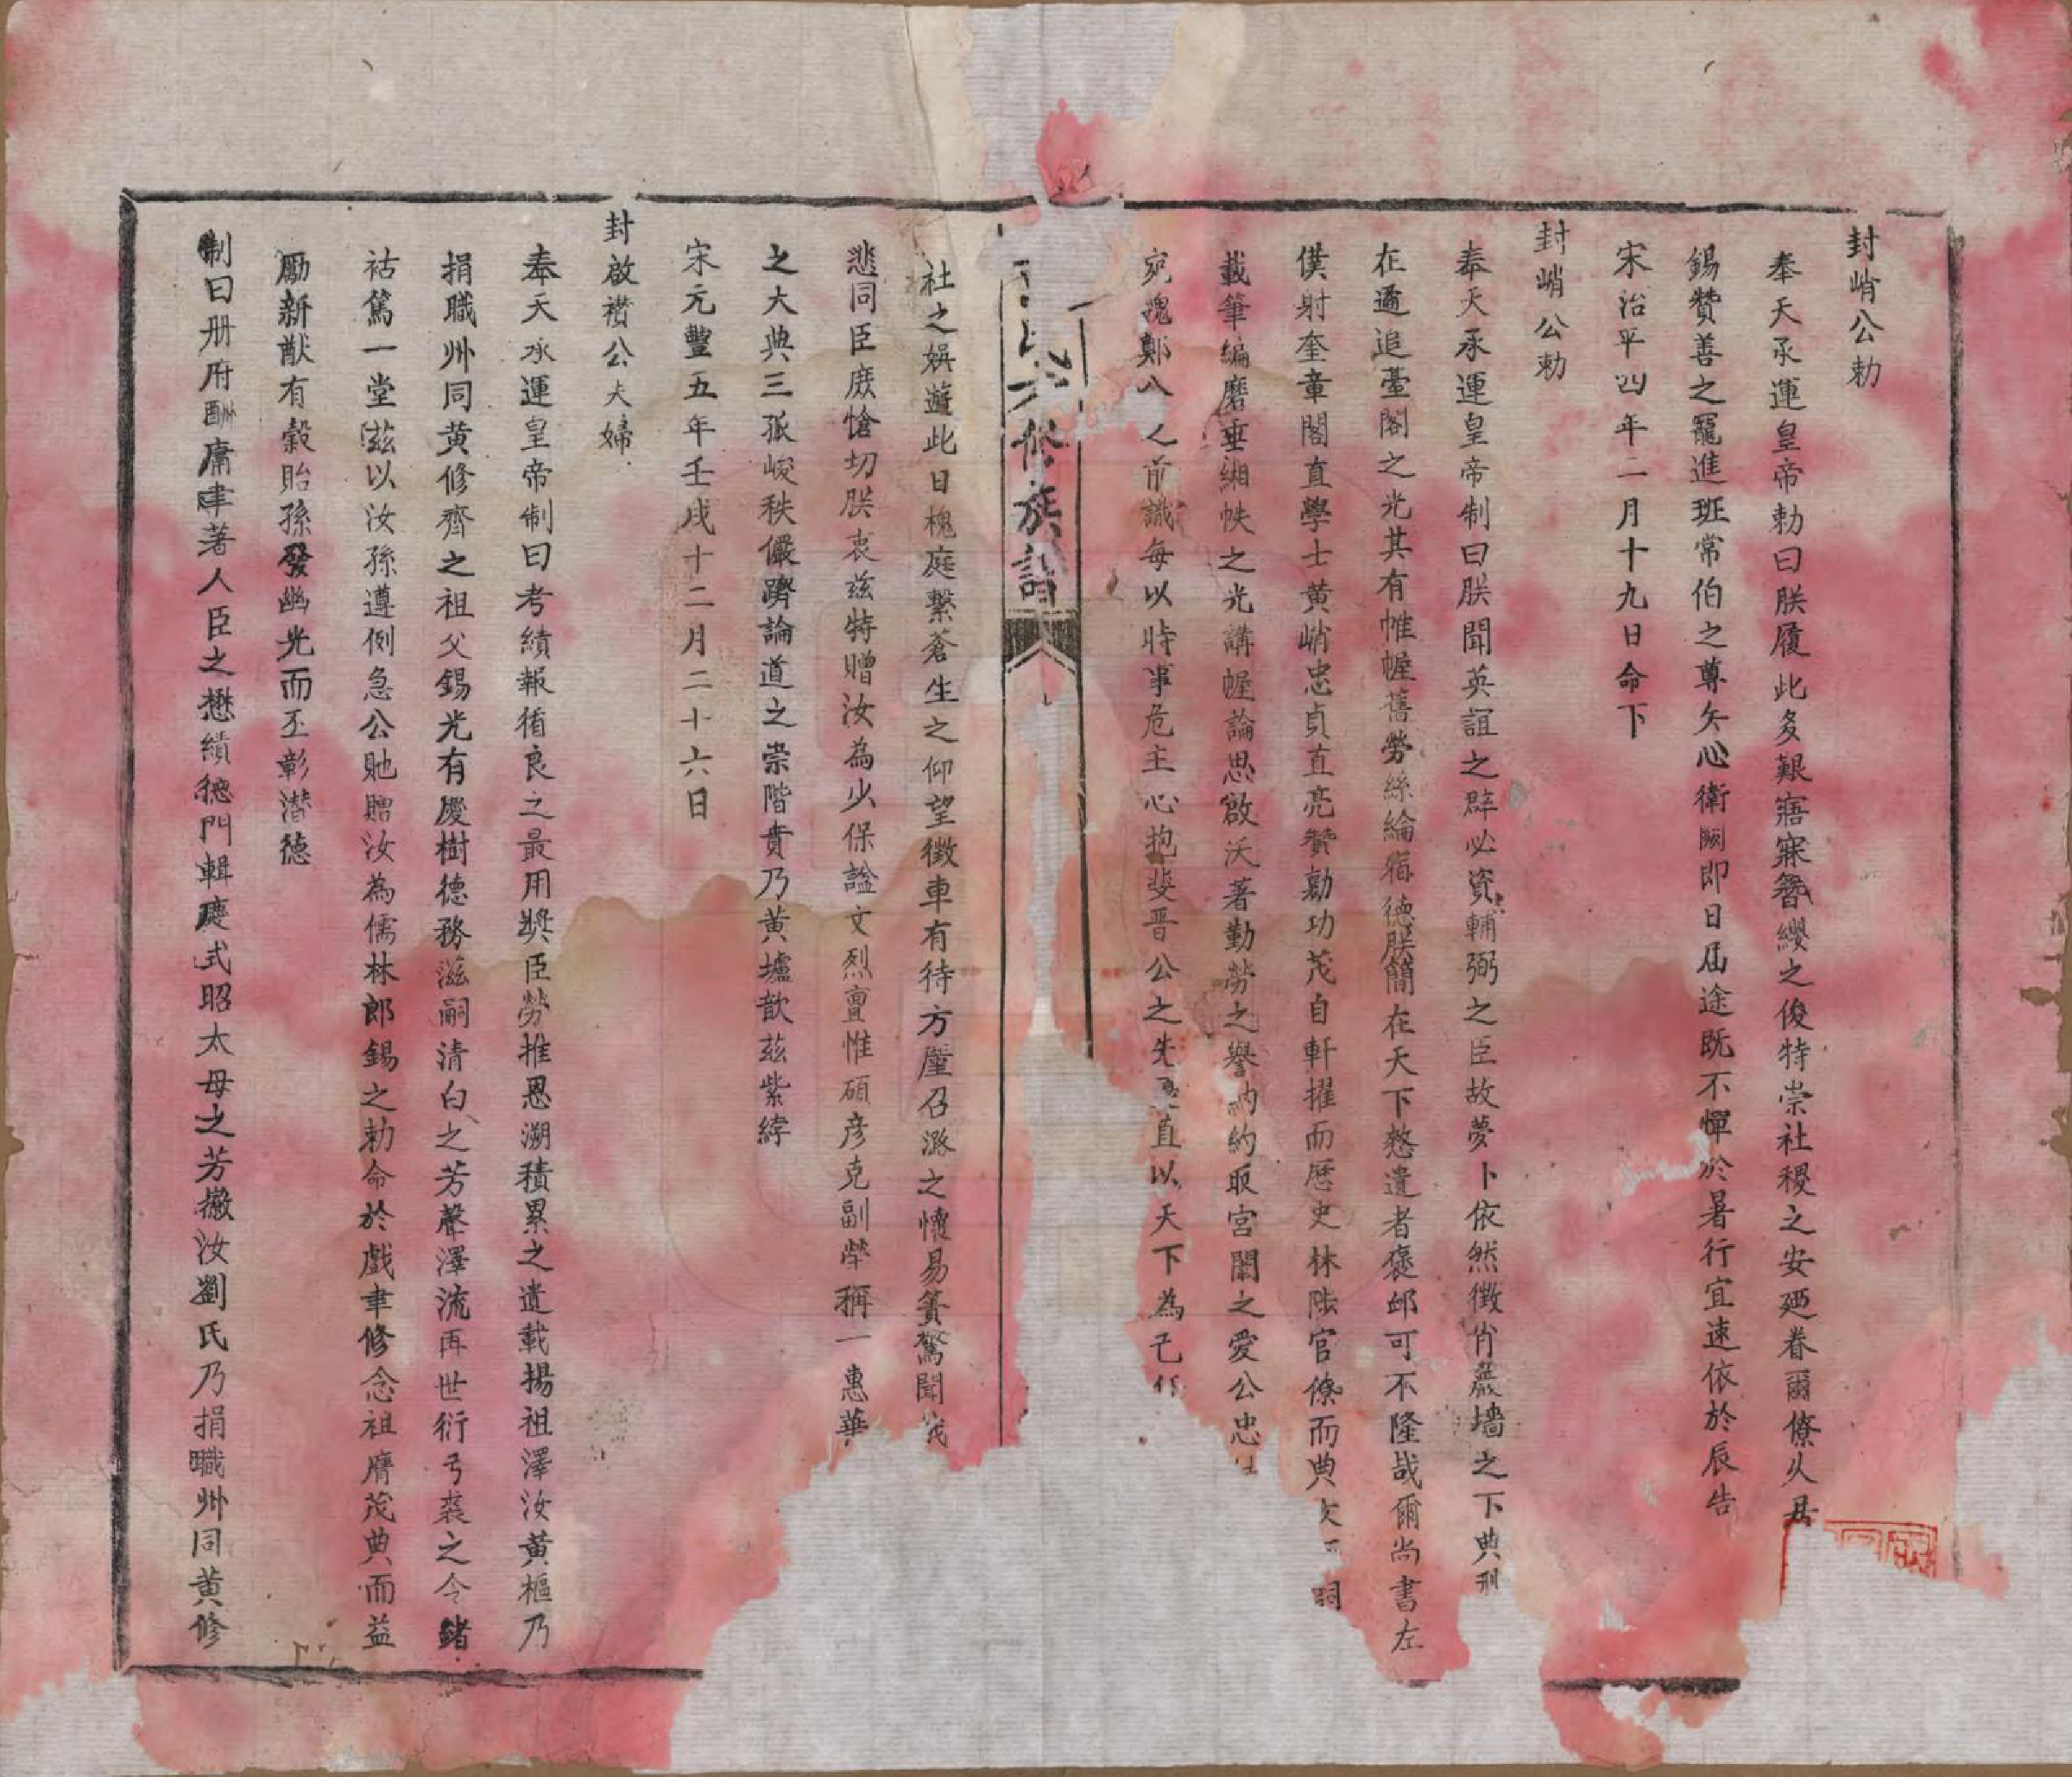 封峭公勅
奉天承運皇帝勅曰朕履此多艱寤寐簮纓之俊特崇社稷之安廼眷爾僚乆居
錫贊善之寵進班常伯之尊矢心衛闕即日屆途既不憚於暑行宜速依於辰告
宋治平四年二月十九日命下
封峭公勅
奉天承運皇帝制曰朕聞英誼之辟必資輔弼之臣故夢卜依然徵肖巖墻之下典刑
在邇追臺閣之光其有帷幄舊勞絲綸宿德朕簡在天下憗遺者褒邮可不隆哉爾尚書左
僕射奎章閣直學士黄峭忠貞直亮贊勷功茂自軒擢而歷史林陟官僚而典
載筆編磨垂緗帙之光講幄論思啟沃著勤勞之譽納約取宮闈之愛公忠
宛魂鄭八之前識每以時事危主心抱斐晋公之先直以天下為己任
氏六修族譜
社之娯遊此日槐庭繫蒼生之仰望徵車有待方廑召潞之懷易簀驚聞
悲同臣庻愴切朕衷兹特贈汝為少保諡文烈亶惟碩彦克副犖稱一惠華
之大典三孤峻秩儼躋論道之崇階賁乃黄壚歆兹紫綍
宋元豐五年壬戌十二月二十六日
封啟襸公夫婦
奉天承運皇帝制曰考績報循良之最用奬臣勞推恩溯積累之遺載揚祖澤汝黄樞乃
捐職州同黄修齊之祖父錫光有慶樹德務滋嗣清白之芳聲澤流再世衍弓裘之令緒
祜篤一堂兹以汝孫遵例急公貤贈汝為儒林郎錫之勅命於戲聿修念祖膺茂典而益
勵新猷有穀貽孫發幽光而丕彰潛德
制曰册府酬庸聿著人臣之懋績德門輯慶式昭太母之芳徽汝劉氏乃捐職州同黄修